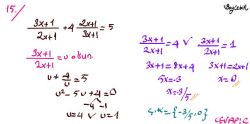 15/
(3x+1)/(2x+1) + 4 (2x+1)/(3x+1) = 5
(3x+1)/(2x+1) = u olsun.
u + 4/u = 5
u² - 5u + 4 = 0
-4 -1
u = 4 ∨ u = 1
(3x+1)/(2x+1) = 4 ∨ (3x+1)/(2x+1) = 1
3x+1 = 8x+4 3x+1 = 2x+1
5x = -3 x = 0
x = -3/5
Ç.K = {-3/5, 0}
CEVAP:C